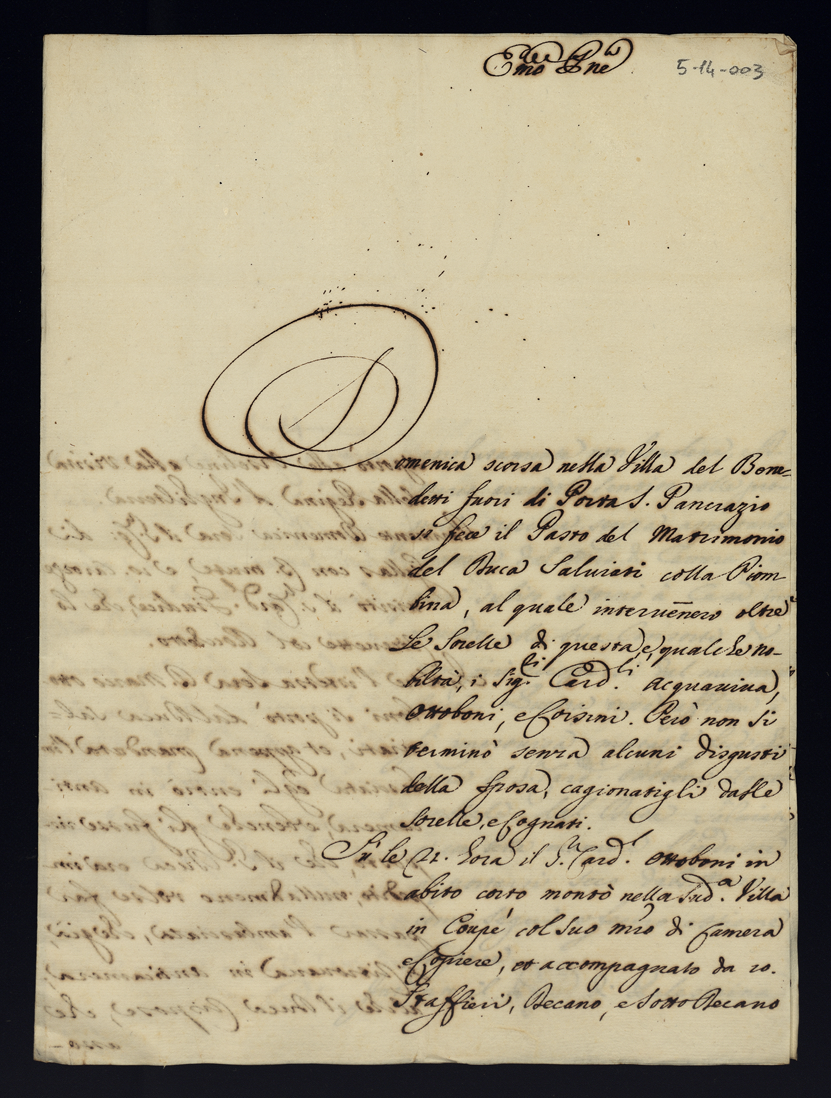 Emo Sne
5-14-003
Domenica scorsa nella Villa del Bene-
detti fuori di Porta S. Pancrazio
si fece il Pasto del Matrimonio
del Duca Salviati colla Piom-
bina, al quale intervenero oltre
le Sorelle di questa, e qualche no-
biltà, i Sig.ri Card.li Acquaviva,
Ottoboni, e Corsini. Però non si
terminò senza alcuni disgusti
della sposa, cagionatigli dalle
Sorelle, e Cognati.
Su le 21. hora il S.r Card.l Ottoboni in
abito corto montò nella sud.a Villa
in Coupé col suo mro di Camera
e Copiere, et accompagnato da 10.
Staffieri, Decano, e Sotto Decano